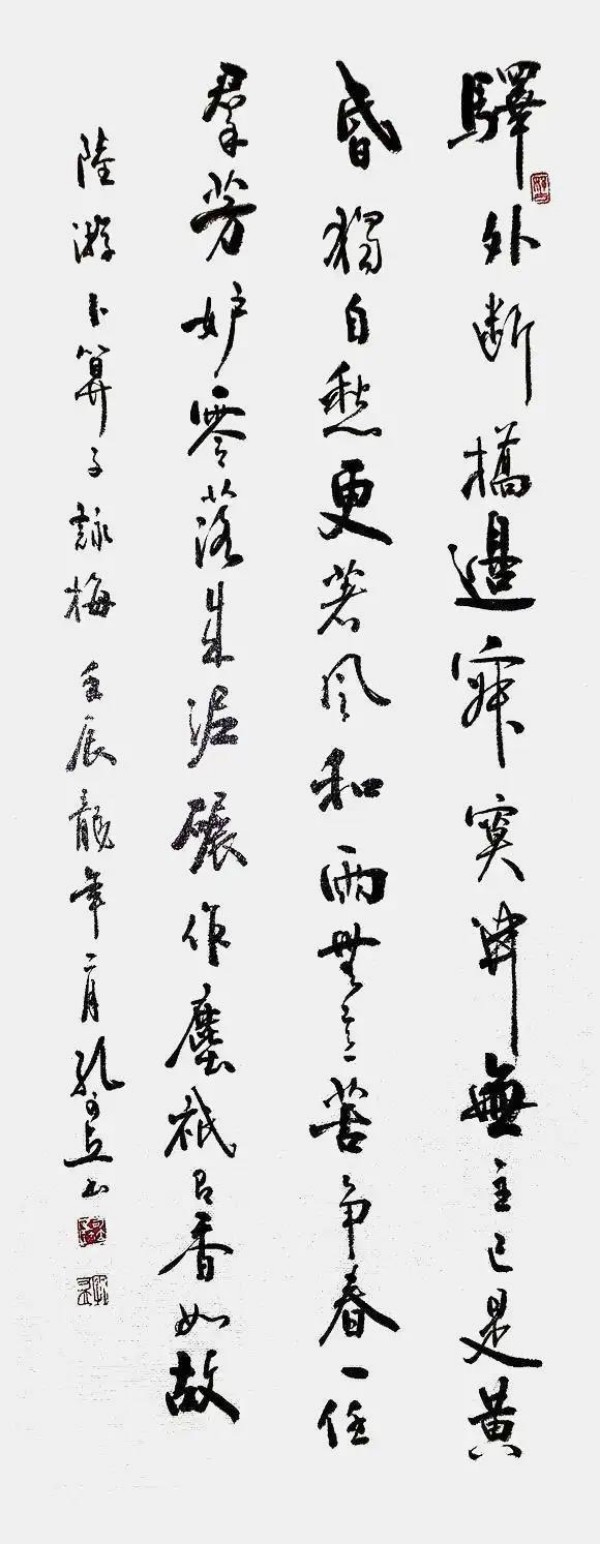 驛外断橋邊寂寞開無主已是黄
昏獨自愁更著風和雨無意苦争春一任
羣芳妒零落成泥碾作塵衹有香如故
陸游卜算子詠梅壬辰龍年二月孔可立书